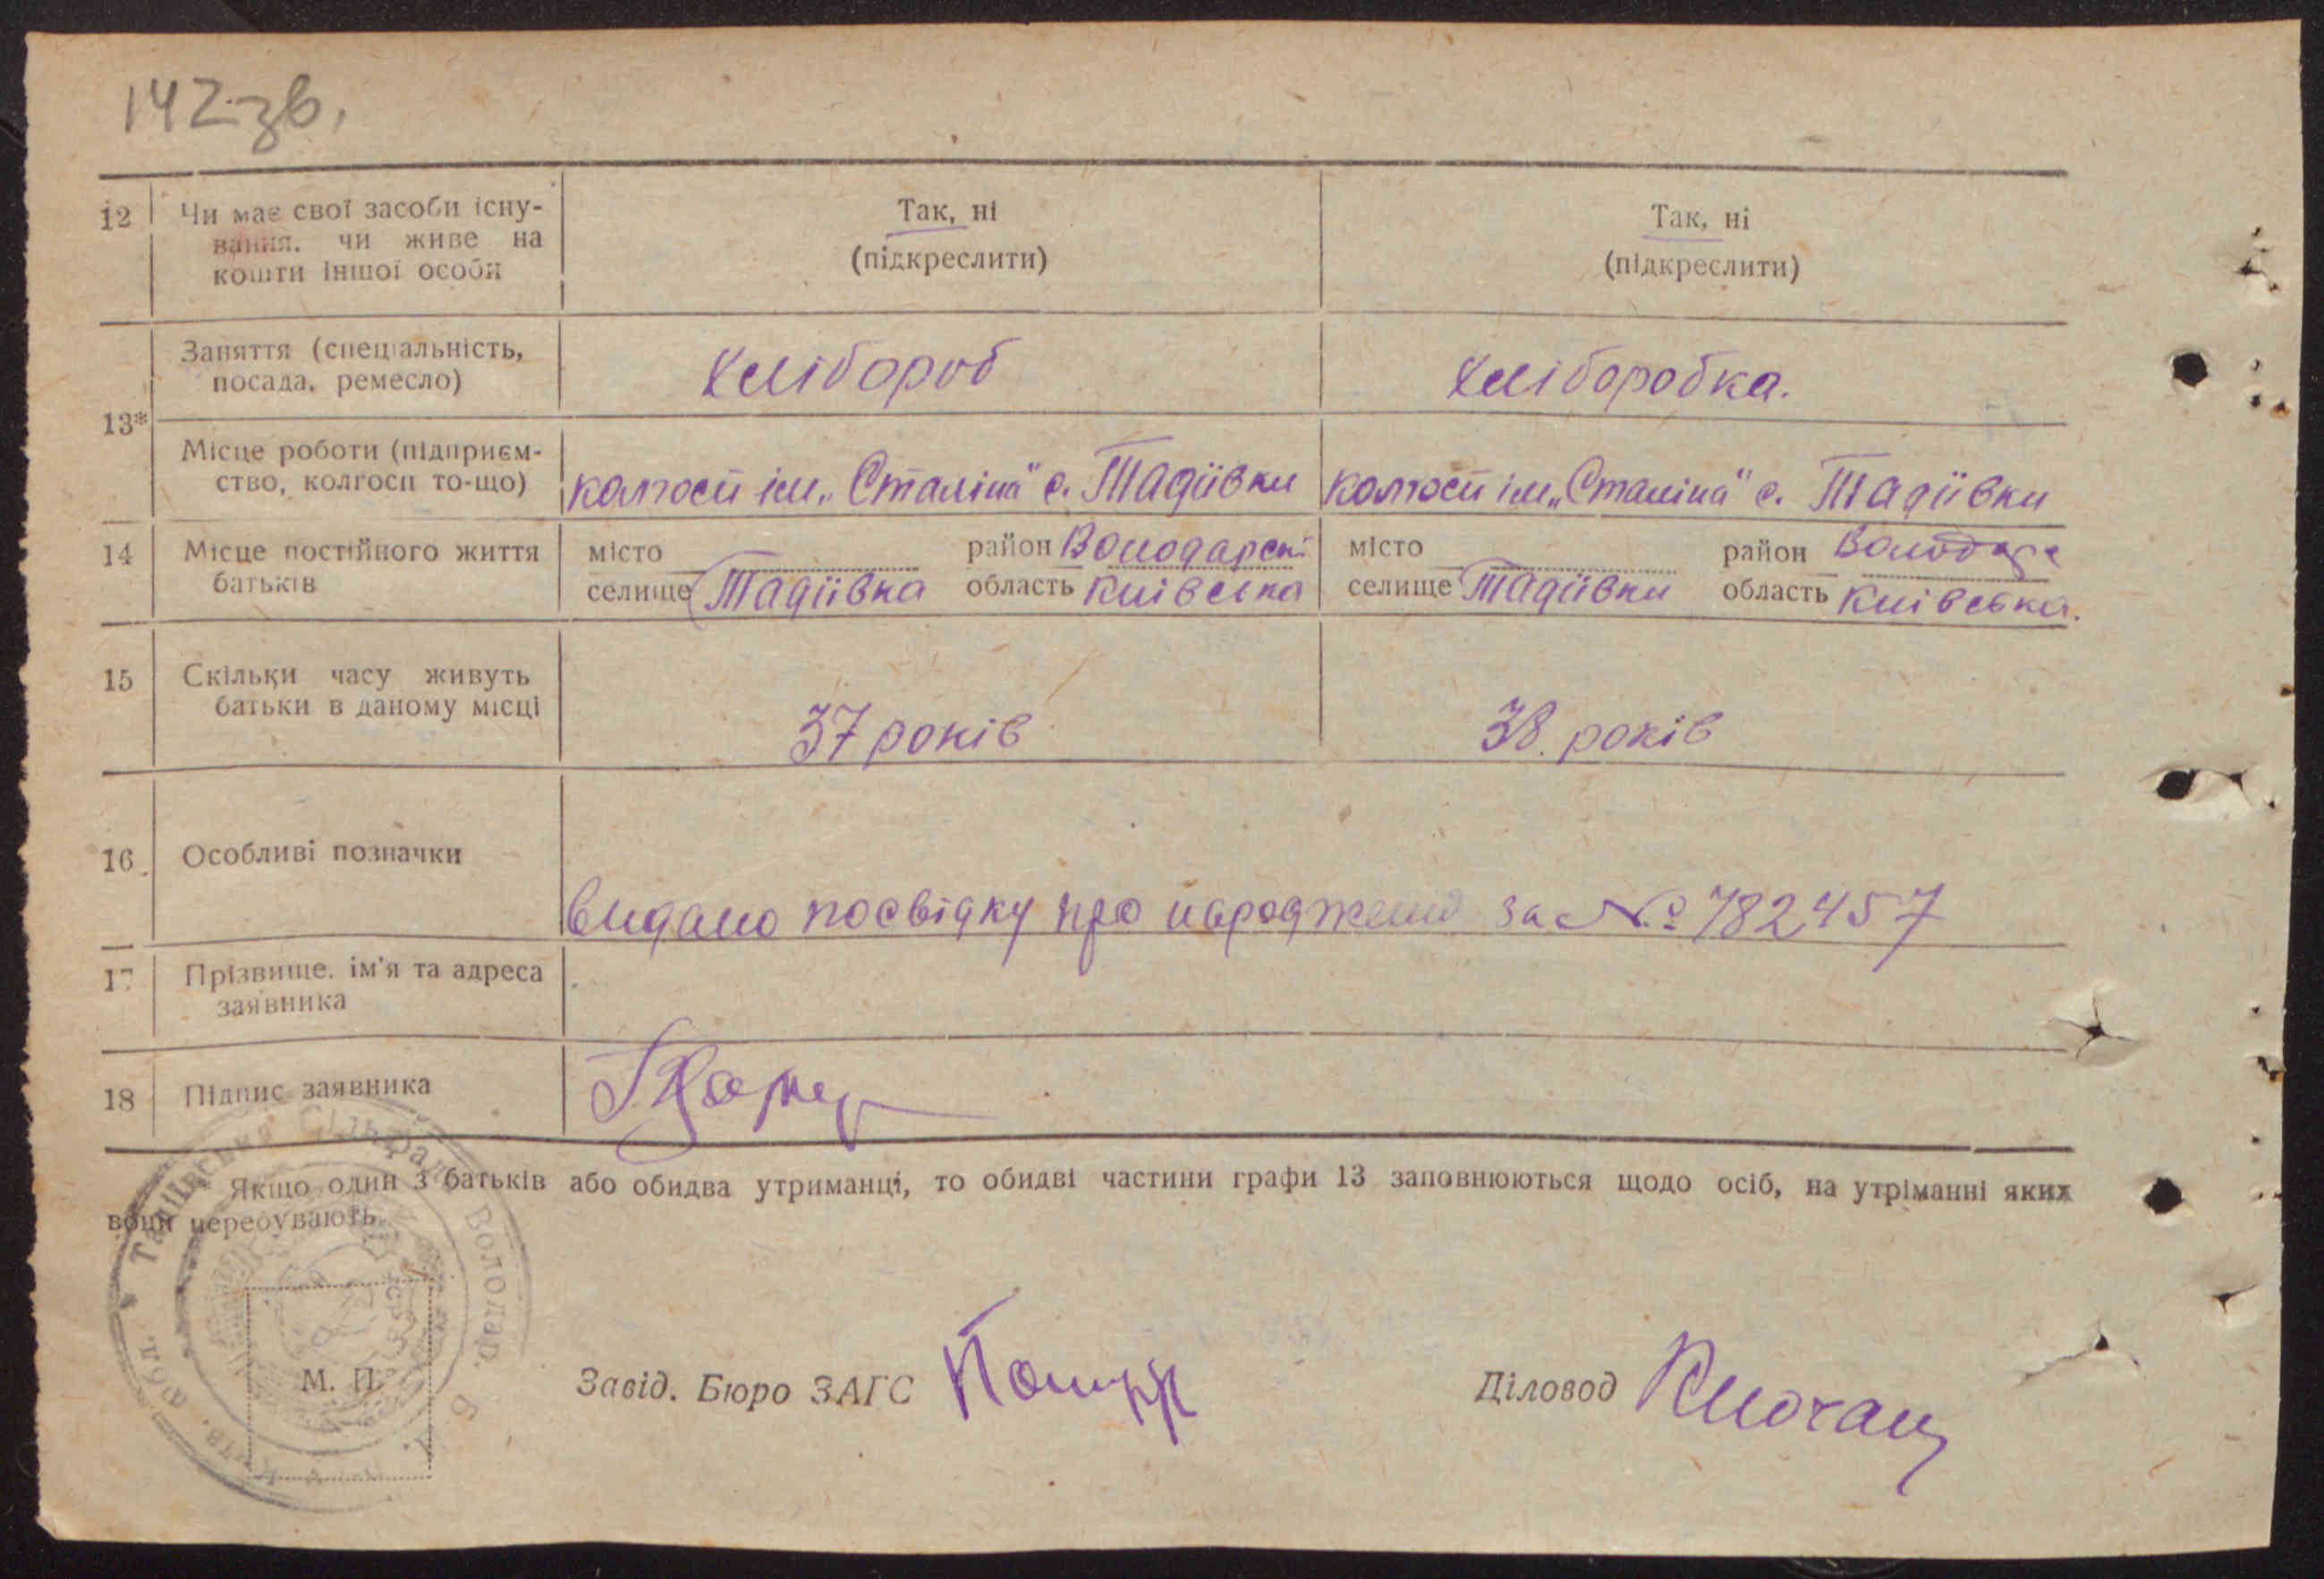 142 зв.
12 Чи має свої засоби існу-
вання. чи живе на
кошти іншої особи
Так, ні
(підкреслити)
Так, ні
(підкреслити)
13*
Заняття (спеціальність,
посада, ремесло)
хлібороб
хліборобка.
Місце роботи (підприєм-
ство, колгосп то-що)
колгосп ім. „Сталіна" с. Тадіївки
колгосп ім „Сталіна" с. Тадіївки
14 Місце постійного життя
батьків
місто район Володарськ
селище Тадіївка область Київська
місто район Володар
селище Тадіївки область Київська.
15 Скільки часу живуть
батьки в даному місці
37 років
38. років
16 Особливі позначки
видано посвідку про народження за № 782457
17 Прізвище. ім'я та адреса
заявника
18 Підпис заявника
* Якщо один з батьків або обидва утриманці, то обидві частини графи 13 заповнюються щодо осіб, на утріманні яких
вони перебувають.
Тадіївська Сільрада Володар.
М. П.
Завід. Бюро ЗАГС
Діловод